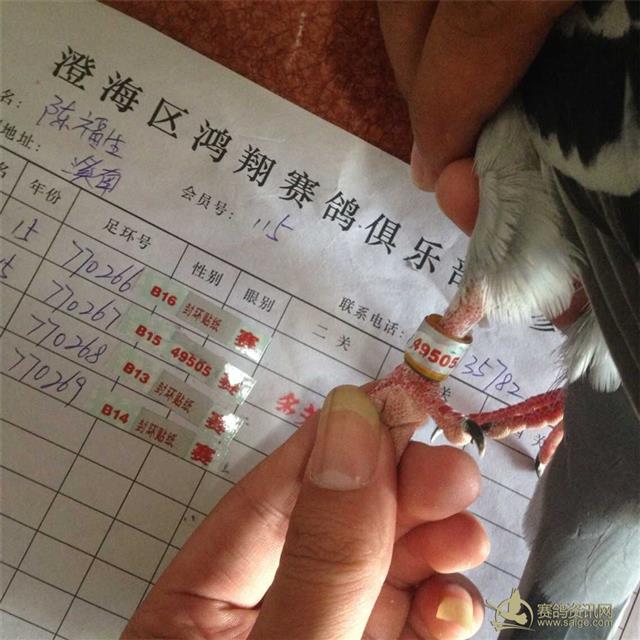 澄海区鸿翔赛鸽俱乐部
名： 陈福生
地址：
会员号： 115
联系电话： 35782
名 年份 足环号 性别 眼别 二关 关
15 770266 B16 封环贴纸 赛
770267 B15 49505 赛
770268 B13 封环贴纸 赛
770269 B14 封环贴纸 赛
49505
赛鸽资讯网
www.saige.com